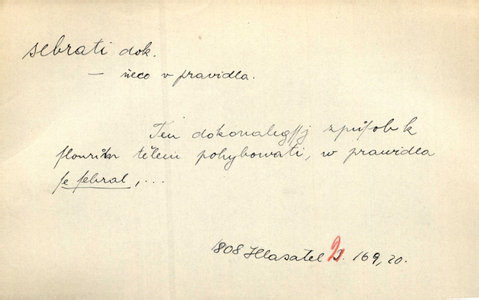 sebrati dok.
— něco v pravidla.
Ten dokonalegſſj způſob k
tělem pohybowati, w prawidla
ſe ſebral, ...
1808 Hlasatel 2. 169, 20.